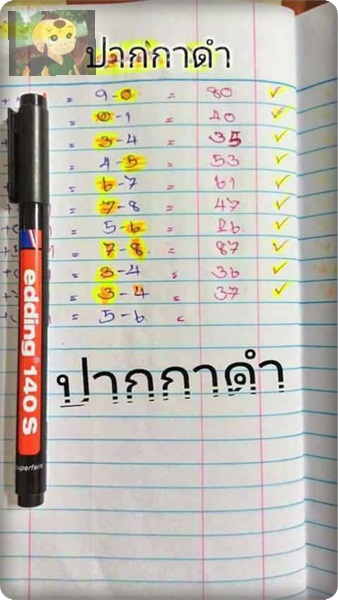 ปากกาดำ
= 9-0 = 80 ✓
= 0-1 = 40 ✓
= 3-4 = 35 ✓
= 4-5 = 53 ✓
= 6-7 = 61 ✓
= 7-8 = 47 ✓
= 5-6 = 26 ✓
= 7-8 = 87 ✓
= 3-4 = 36 ✓
= 3-4 = 37 ✓
= 5-6 =
ปากกาดำ
edding 140 S
superfein